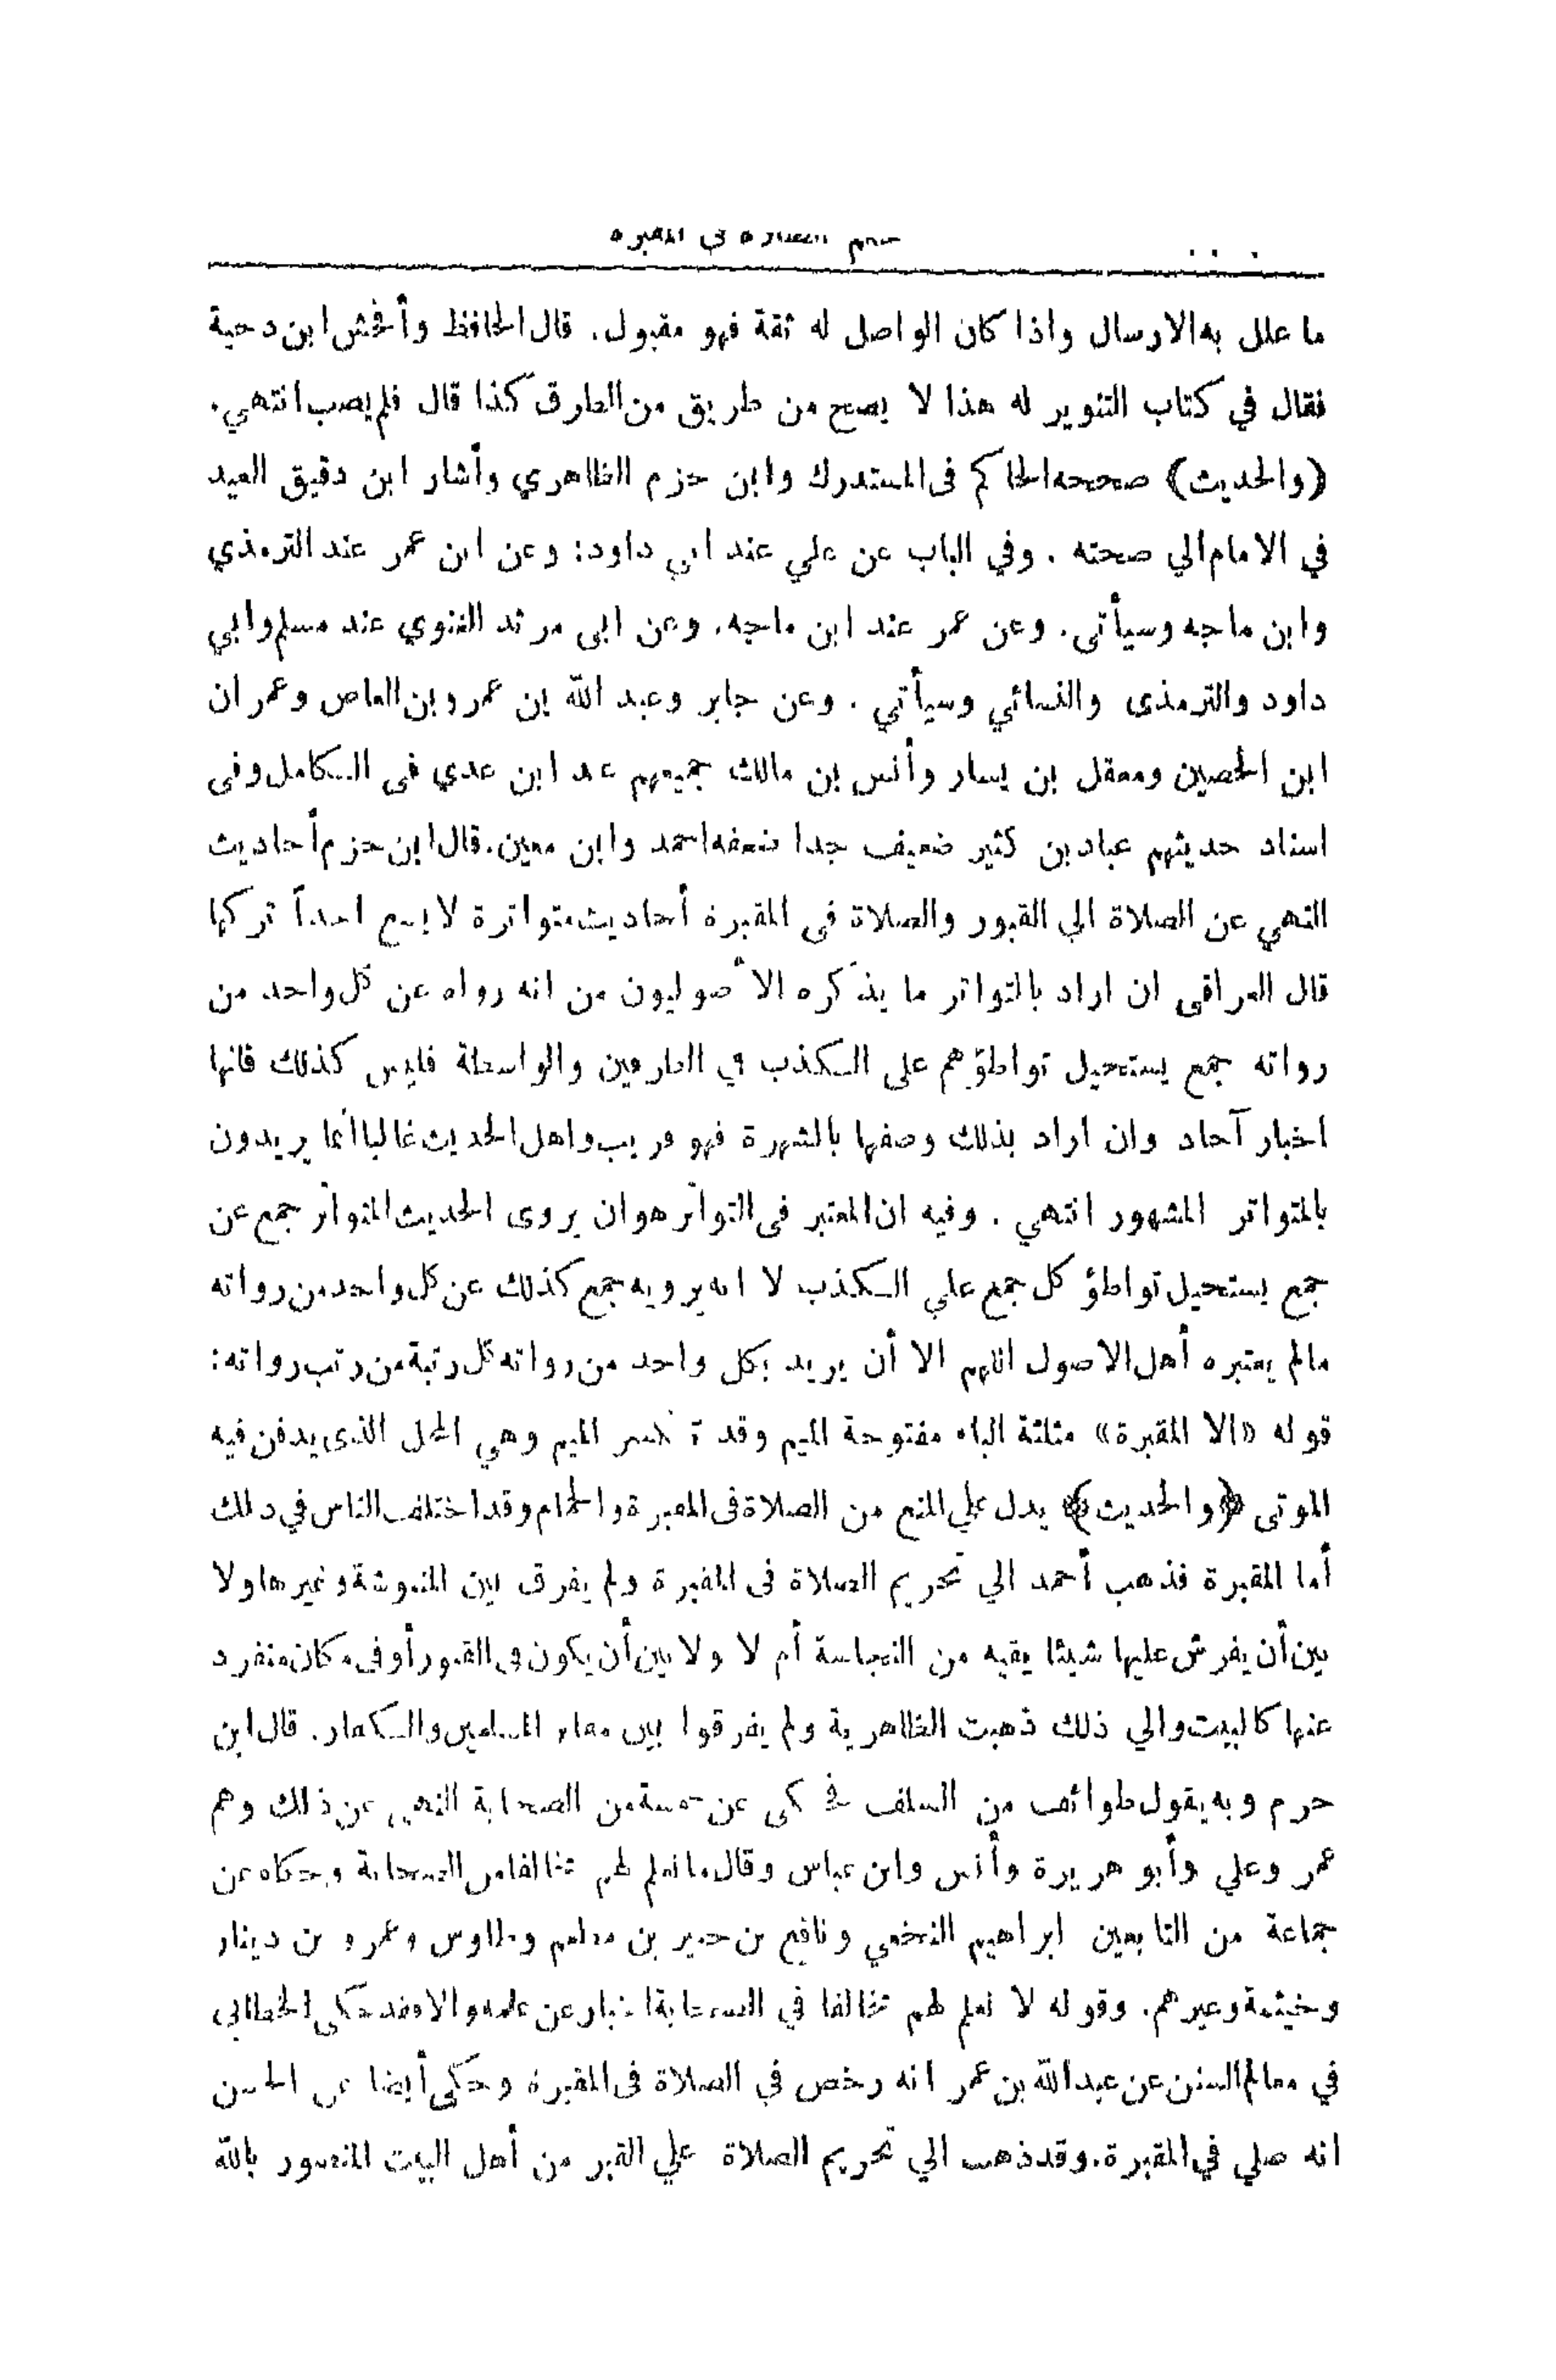 الصلاة في المقبرة
ما علل به الارسال واذا كان الواصل له ثقة فهو مقبول. قال الحافظ وأفحش ابن دحية
فقال في كتاب التنوير له هذا لا يصح من طريق من الطرق كذا قال فلم يصب انتهي.
﴿والحديث﴾ صححه الحاكم فى المستدرك وابن حزم الظاهري وأشار ابن دقيق العيد
في الامام الي صحته . وفي الباب عن علي عند ابي داود: وعن ابن عمر عند الترمذي
وابن ماجه وسيأتى. وعن عمر عند ابن ماجه. وعن ابى مرثد الغنوي عند مسلم وابي
داود والترمذى والنسائي وسيأتي . وعن جابر وعبد الله بن عمرو بن العاص وعمران
ابن الحصين ومعقل بن يسار وأنس بن مالك جميعهم عند ابن عدي فى الكامل وفى
اسناد حديثهم عباد بن كثير ضعيف جدا ضعفه احمد وابن معين. قال ابن حزم أحاديث
النهي عن الصلاة الي القبور والصلاة فى المقبرة أحاديث متواترة لا يسع احداً تركها
قال العراقى ان اراد بالتواتر ما يذكره الأصوليون من انه رواه عن كل واحد من
رواته جمع يستحيل تواطؤهم على الكذب في الطرفين والواسطة فليس كذلك فانها
اخبار آحاد وان اراد بذلك وصفها بالشهرة فهو قريب واهل الحديث غالبا انما يريدون
بالمتواتر المشهور انتهي . وفيه ان المعتبر فى التواتر هو ان يروى الحديث المتواتر جمع عن
جمع يستحيل تواطؤ كل جمع علي الكذب لا انه يرويه جمع كذلك عن كل واحد من رواته
مالم يعتبره أهل الاصول اللهم الا أن يريد بكل واحد من رواته كل رتبة من رتب رواته:
قوله «الا المقبرة» مثلثة الباء مفتوحة الميم وقد تكسر الميم وهي المحل الذى يدفن فيه
الموتى ﴿والحديث﴾ يدل علي المنع من الصلاة فى المقبرة والحمام وقد اختلف الناس في ذلك
أما المقبرة فذهب أحمد الي تحريم الصلاة فى المقبرة ولم يفرق بين المنبوشة وغيرها ولا
بين أن يفرش عليها شيئا يقيه من النجاسة أم لا ولا بين أن يكون في القبور أو فى مكان منفرد
عنها كالبيت والي ذلك ذهبت الظاهرية ولم يفرقوا بين مقابر المسلمين والكفار. قال ابن
حزم وبه يقول طوائف من السلف فحكى عن خمسة من الصحابة النهى عن ذلك وهم
عمر وعلي وأبو هريرة وأنس وابن عباس وقال ما نعلم لهم مخالفا من الصحابة وحكاه عن
جماعة من التابعين ابراهيم النخعي ونافع بن جبير بن مطعم وطاوس وعمرو بن دينار
وخيثمة وغيرهم. وقوله لا نعلم لهم مخالفا في الصحابة اخبار عن علمه والا فقد حكى الخطابي
في معالم السنن عن عبد الله بن عمر انه رخص في الصلاة فى المقبرة وحكى أيضا عن الحسن
انه صلي في المقبرة. وقد ذهب الي تحريم الصلاة علي القبر من أهل البيت المنصور بالله